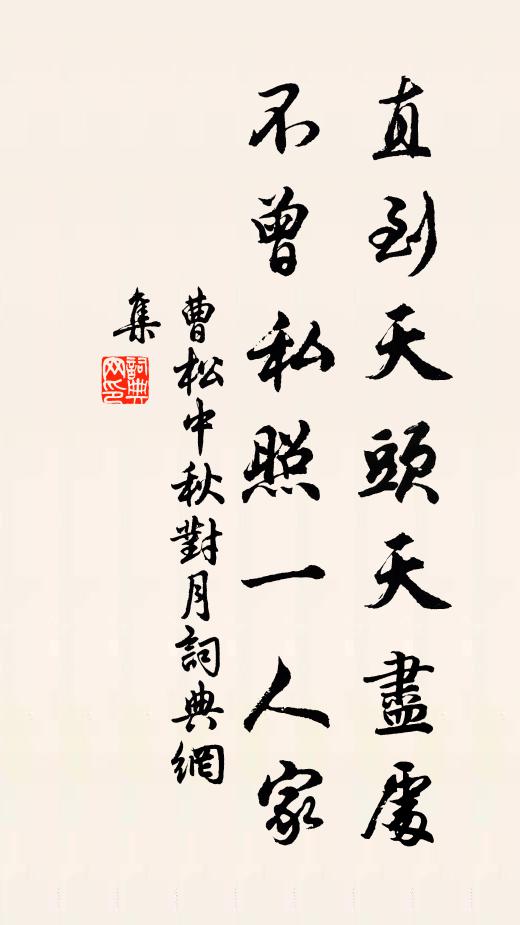 直到天頭天盡處
不曾私照一人家
曹松中秋對月詞典網
集
詞典
网印